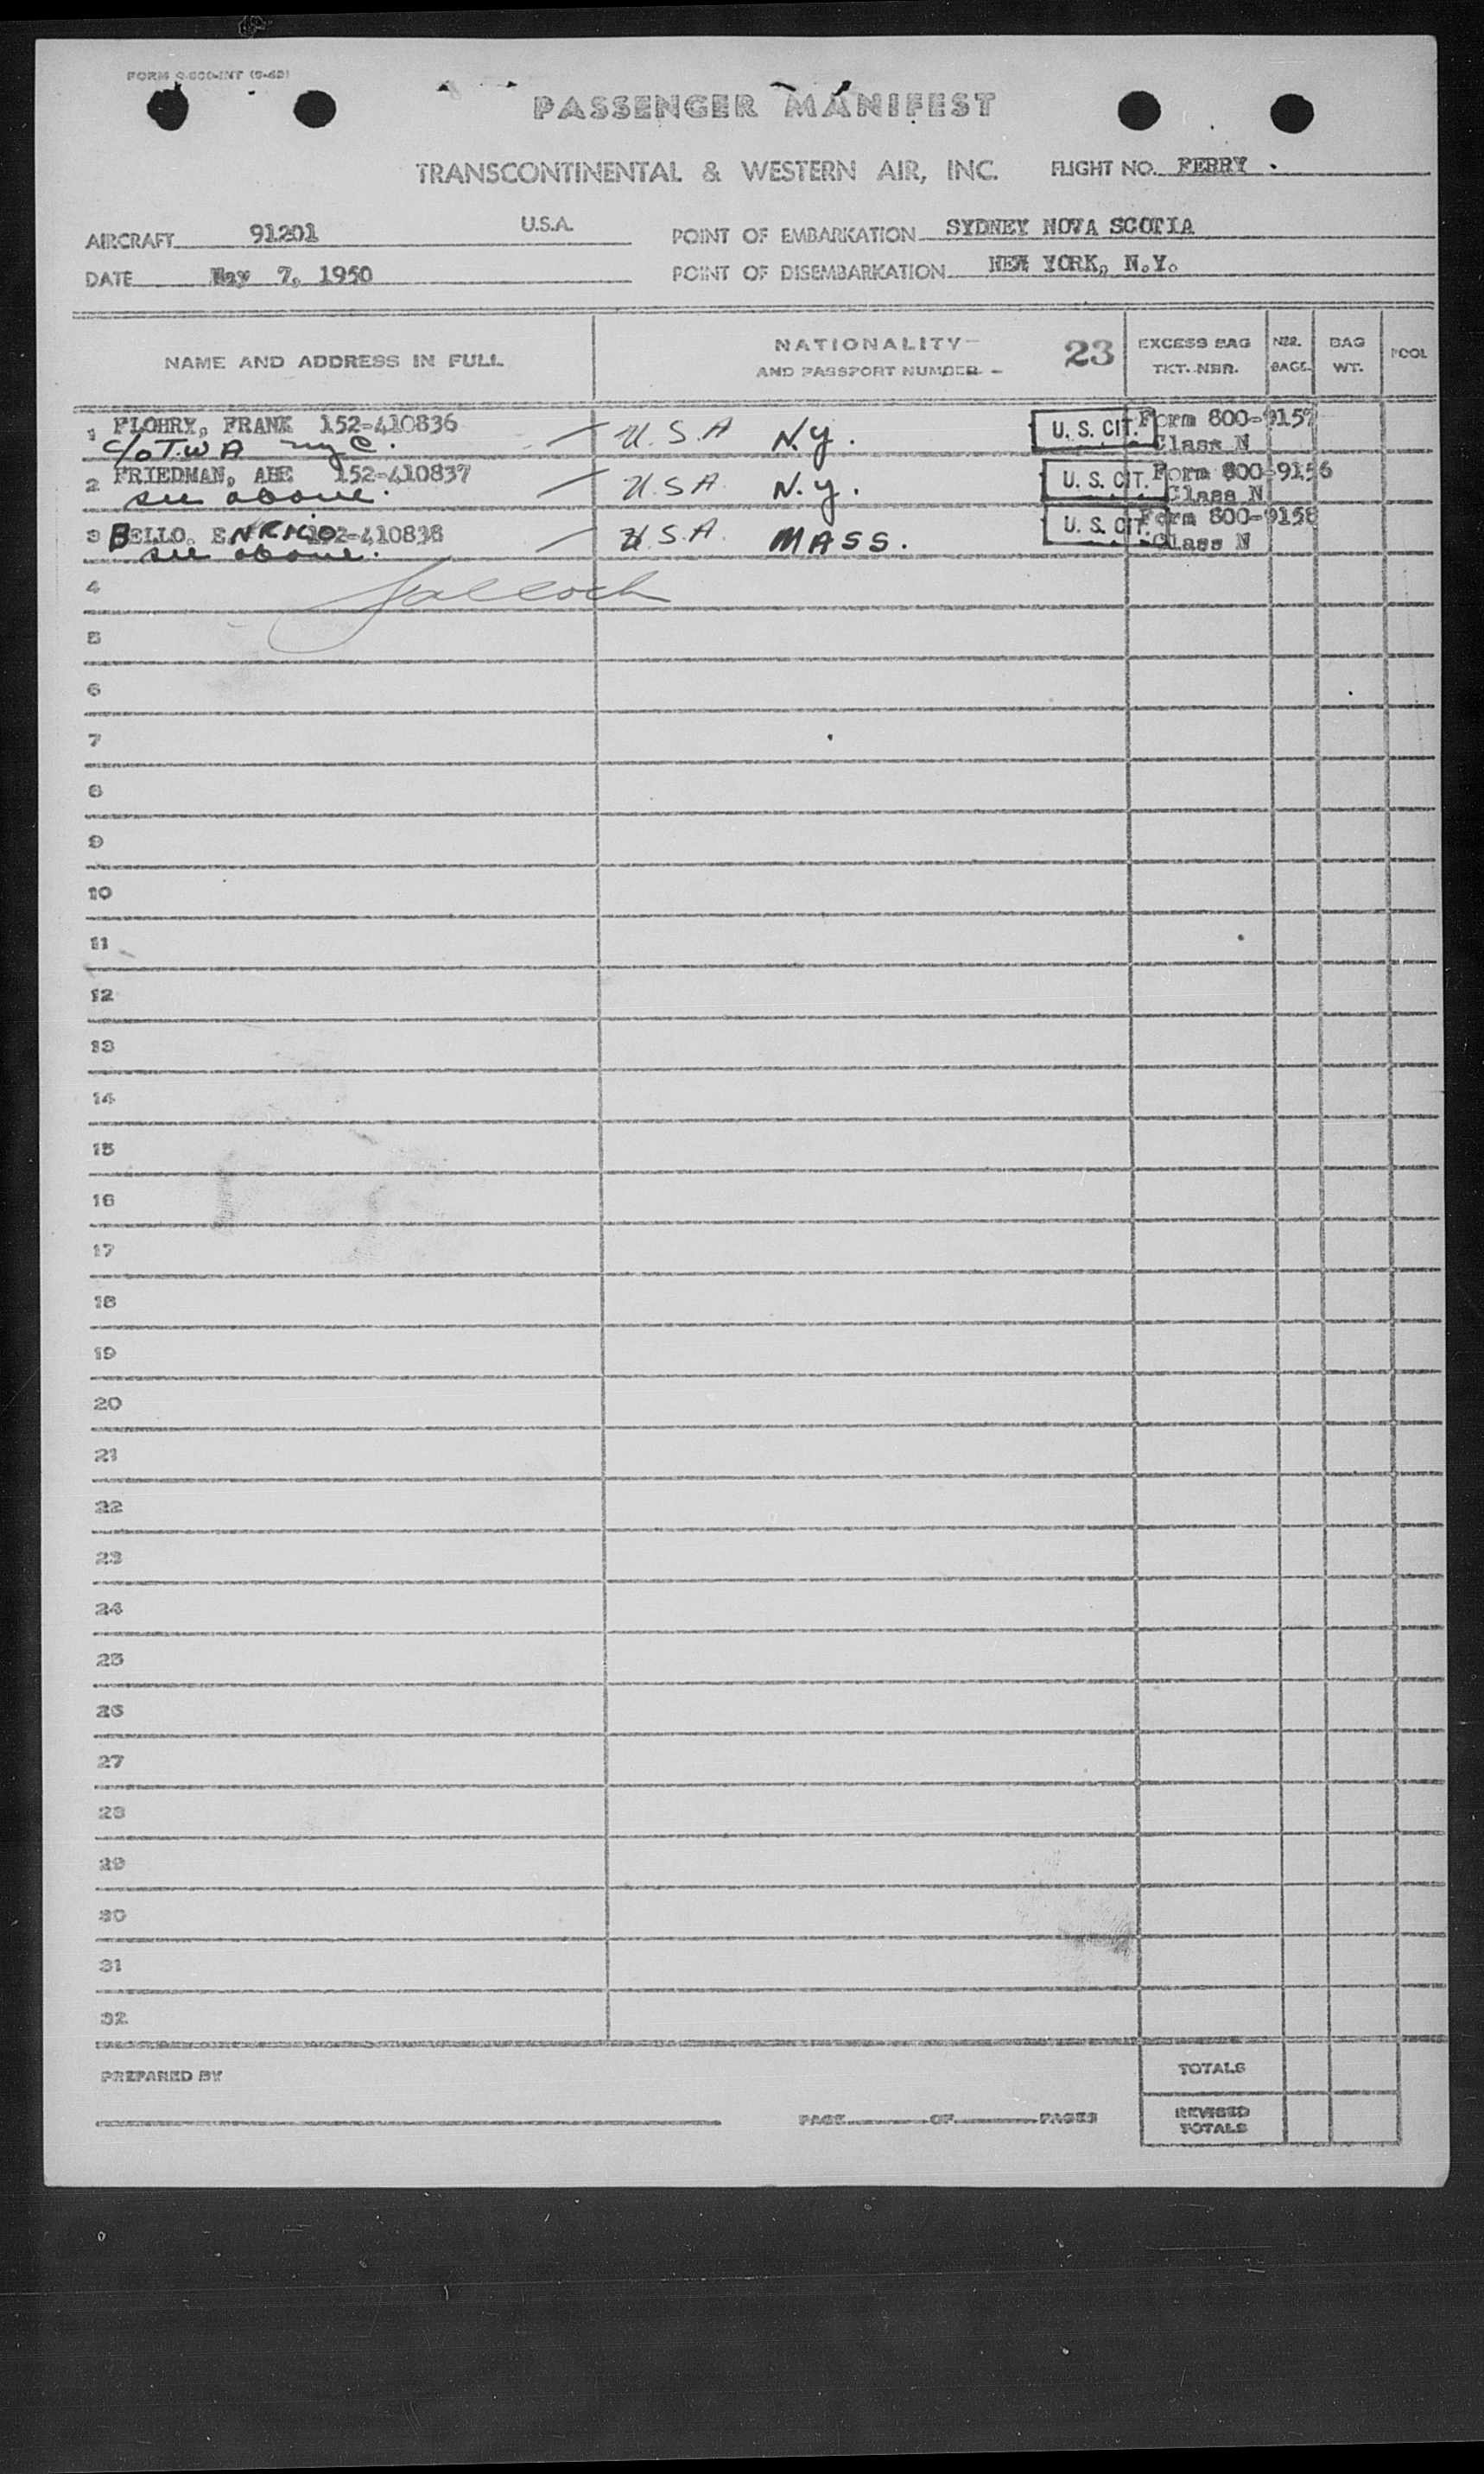 FORM O-800-INT (9-48)
PASSENGER MANIFEST
TRANSCONTINENTAL & WESTERN AIR, INC. FLIGHT NO. FERRY
AIRCRAFT 91201 U.S.A. POINT OF EMBARKATION SYDNEY NOVA SCOTIA
DATE May 7, 1950 POINT OF DISEMBARKATION NEW YORK, N.Y.
NAME AND ADDRESS IN FULL NATIONALITY AND PASSPORT NUMBER 23 EXCESS BAG TKT. NBR. NBR. BAGS BAG WT. POOL
1 FLOHRY, FRANK 152-410836 U.S.A N.Y. U. S. CIT. Form 800-9157
c/o T.W A NYC. Class N
2 FRIEDMAN, ABE 152-410837 U.S.A. N.Y. U. S. CIT. Form 800-9156
see above. Class N
3 BELLO, ENRICO 152-410838 U.S.A. MASS. U. S. CIT. Form 800-9158
see above. Class N
4
5
6
7
8
9
10
11
12
13
14
15
16
17
18
19
20
21
22
23
24
25
26
27
28
29
30
31
32
PREPARED BY TOTALS
PAGE OF PAGES REVISED TOTALS